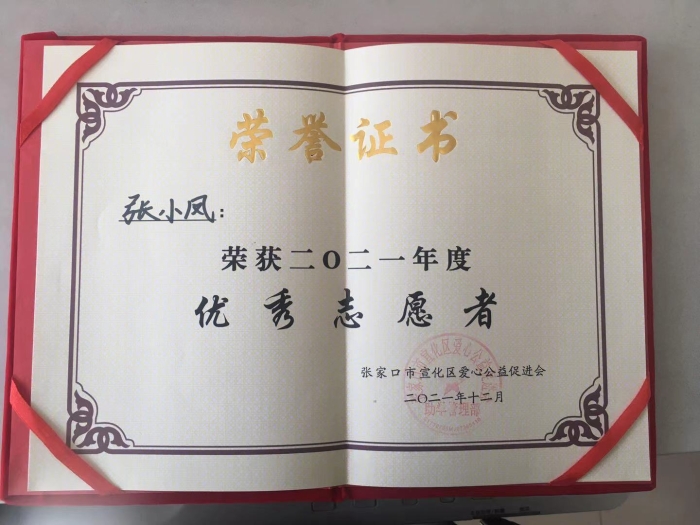 荣誉证书
张小凤：
荣获二〇二一年度
优秀志愿者
张家口市宣化区爱心公益促进会
二〇二一年十二月